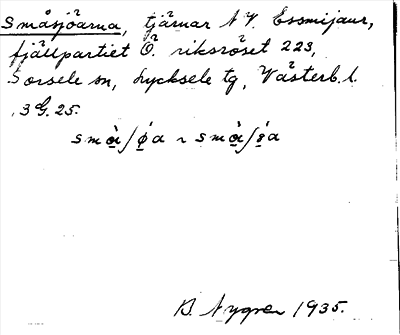 Småsjöarna, tjärnar N.V. Essmijaur,
fjällpartiet Ö. riksröset 223,
Sorsele sn, Lycksele tg, Västerb. l.
3 G. 25.
smà̱/ǿ̱a ~ smà̱/ɞ̱́a
B. Nygren 1935.